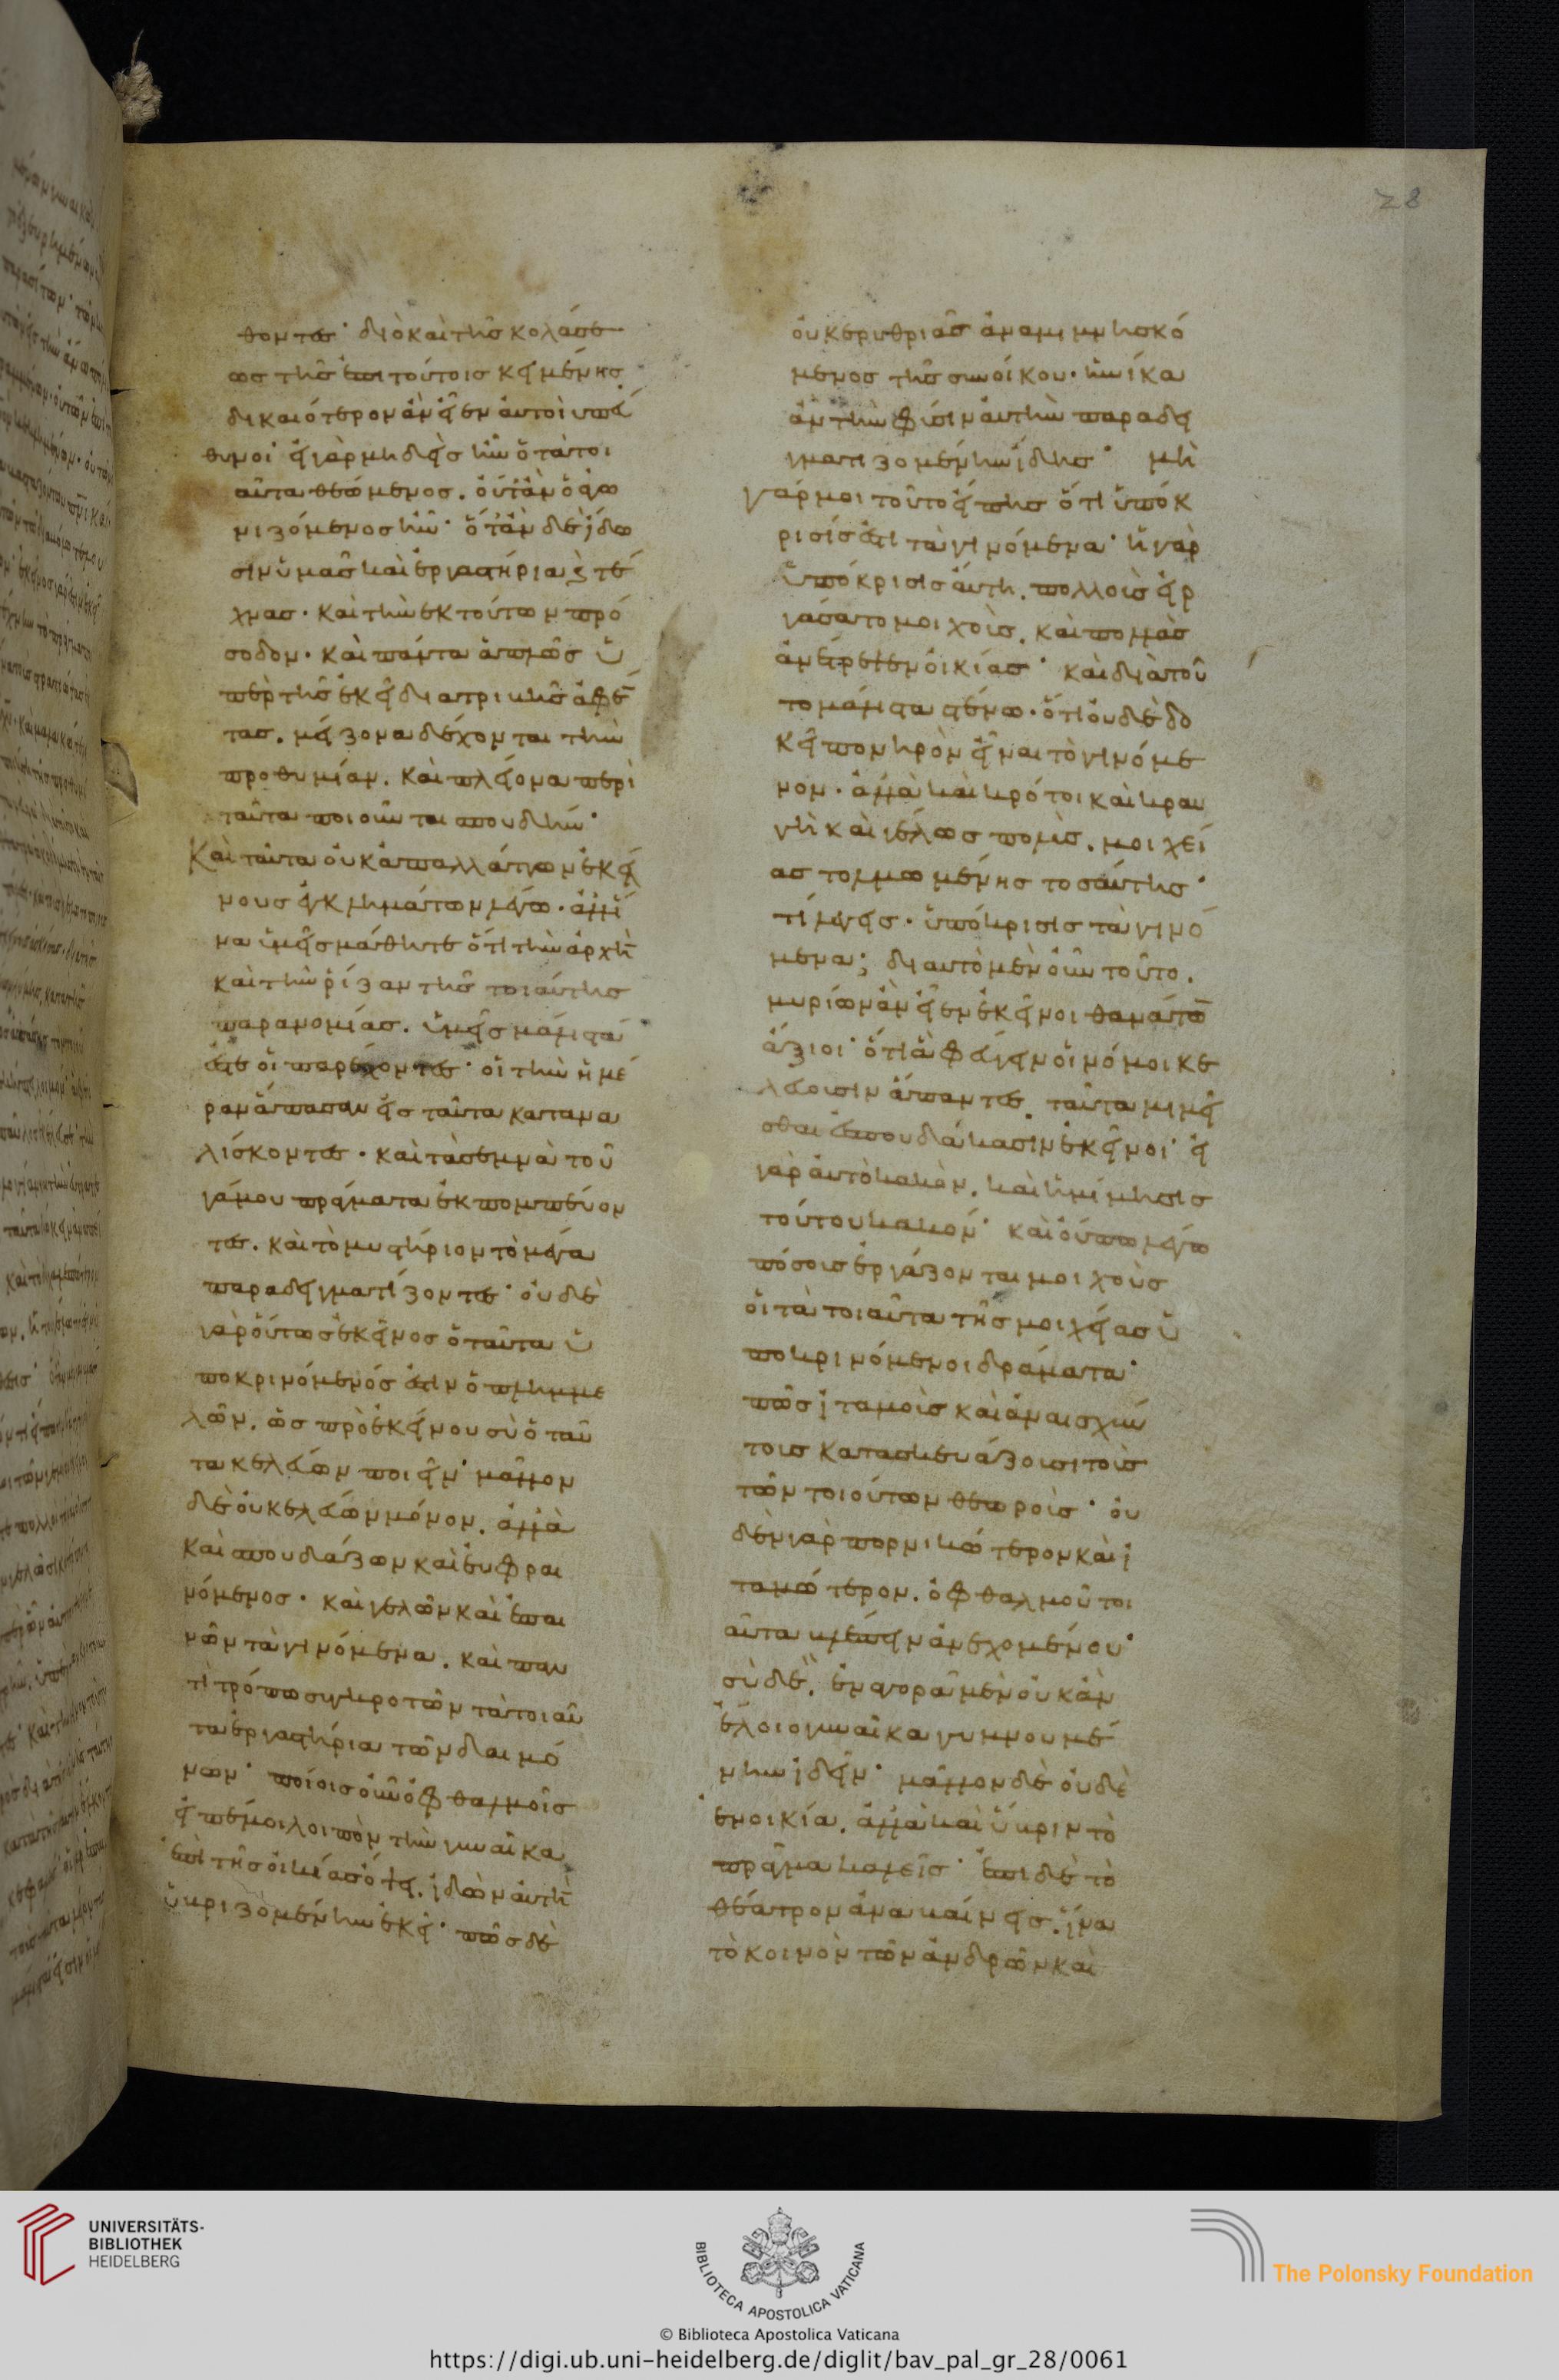 θοντες· διὸ καὶ τῆς κολάσε
ως τῆς ἐπι τούτοις κειμένης
δικαιότερον ἂν εἶεν αὐτοὶ ὑπεύ
θυνοι· εἰ γὰρ μηδεὶς ἦν ὁ τὰ τοι
αῦτα θεώμενος, οὔτ' ἂν ὁ ἀγω
νιζόμενος ἦν· ὅτ' ἂν δὲ ἴδω
σιν ὑμᾶς καὶ ἐργαστήρια ϗ τέ
χνας· καὶ τὴν ἐκ τούτων πρό
σοδον· καὶ πάντα ἁπλῶς ὑ
πὲρ τῆς ἐκεῖ διατριβῆς ἀφέν
τας, μείζονα δέχονται τὴν
προθυμίαν, καὶ πλείονα περὶ
ταῦτα ποιοῦνται σπουδήν·
Καὶ ταῦτα οὐκ ἀπαλλάττων ἐκεί
νους ἐγκλημάτων λέγω· ἀλλ' ἵ
να ὑμεῖς μάθητε ὅτι τὴν ἀρχὴν
καὶ τὴν ῥίζαν τῆς τοιαύτης
παρανομίας, ὑμεῖς μάλιστά
ἐστε οἱ παρέχοντες· οἱ τὴν ἡμέ
ραν ἅπασαν εἰς ταῦτα κατανα
λίσκοντες· καὶ τὰ σεμνὰ τοῦ
γάμου πράγματα ἐκπομπεύον
τες, καὶ τὸ μυστήριον τὸ μέγα
παραδειγματίζοντες· οὐδὲ
γὰρ οὕτως ἐκεῖνος ὁ ταῦτα ὑ
ποκρινόμενός ἐστιν ὁ πλημμε
λῶν, ὡς πρὸ ἐκείνου σὺ ὁ ταῦ
τα κελεύων ποιεῖν· μᾶλλον
δὲ οὐ κελεύων μόνον, ἀλλὰ
καὶ σπουδάζων καὶ εὐφραι
νόμενος· καὶ γελῶν καὶ ἐπαι
νῶν τὰ γινόμενα, καὶ παν
τὶ τρόπω συγκροτῶν τὰ τοιαῦ
τα ἐργαστήρια τῶν δαιμό
νων· ποίοις οὖν ὀφθαλμοῖς
εἰπέ μοι λοιπὸν τὴν γυναῖκα
ἐπὶ τῆς οἰκίας ὄψει, ἰδὼν αὐτὴν
ὑβριζομένην ἐκεῖ· πῶς δὲ
οὐκ ἐρυθριᾶς ἀναμιμνησκό
μενος τῆς συνοίκου· ἡνίκα
ἂν τὴν φύσιν αὐτὴν παραδει
γματιζομένην ἴδης· μὴ
γάρ μοι τοῦτο εἴπης ὅτι ὑπόκ
ρισίς ἐστι τὰ γινόμενα· ἡ γὰρ
ὑπόκρισις αὕτη, πολλοὺς εἰρ
γάσατο μοιχοὺς, καὶ πολλὰς
ἀνέτρεψεν οἰκίας· καὶ διὰ τοῦ
το μάλιστα στένω· ὅτι οὐδὲ δο
κεῖ πονηρὸν εἶναι τὸ γινόμε
νον· ἀλλὰ καὶ κρότοι καὶ κραυ
γὴ καὶ γέλως πολὺς, μοιχεί
ας τολμωμένης τοσαύτης·
τί λέγεις· ὑπόκρισις τὰ γινό
μενα; δι αυτὸ μὲν οὖν τοῦτο,
μυρίων ἂν εἶεν ἐκεῖνοι θανάτων
ἄξιοι· ὅτι ἃ φεύγειν οἱ νόμοι κε
λεύουσιν ἅπαντες, ταῦτα μιμεῖ
σθαι ἐσπουδάκασιν ἐκεῖνοι· εἰ
γὰρ αὐτὸ κακὸν, καὶ ἡ μίμησις
τούτου κακόν· καὶ οὔπω λέγω
πόσους ἐργάζονται μοιχοὺς
οἱ τὰ τοιαῦτα τῆς μοιχείας ὑ
ποκρινόμενοι δράματα·
πῶς ἰταμοὺς καὶ ἀναισχύν
τους κατασκευάζουσι τοὺς
τῶν τοιούτων θεωρούς· οὐ
δὲν γὰρ πορνικώτερον καὶ ἰ
ταμώτερον, ὀφθαλμοῦ τοι
αῦτα βλέπειν ἀνεχομένου·
σὺ δὲ, ἐν ἀγορᾶ μὲν οὐκ ἂν
ἕλοιο γυναῖκα γυμνουμέ
νην ἰδεῖν· μᾶλλον δὲ οὐδὲ
ἐν οικία, ἀλλὰ καὶ ὕβριν τὸ
πρᾶγμα καλεῖς· ἐπι δὲ τὸ
θέατρον ἀναβαίνεις, ἵνα
τὸ κοινὸν τῶν ἀνδρῶν καὶ
28
UNIVERSITÄTS-
BIBLIOTHEK
HEIDELBERG
BIBLIOTECA APOSTOLICA VATICANA
The Polonsky Foundation
© Biblioteca Apostolica Vaticana
https://digi.ub.uni-heidelberg.de/diglit/bav_pal_gr_28/0061